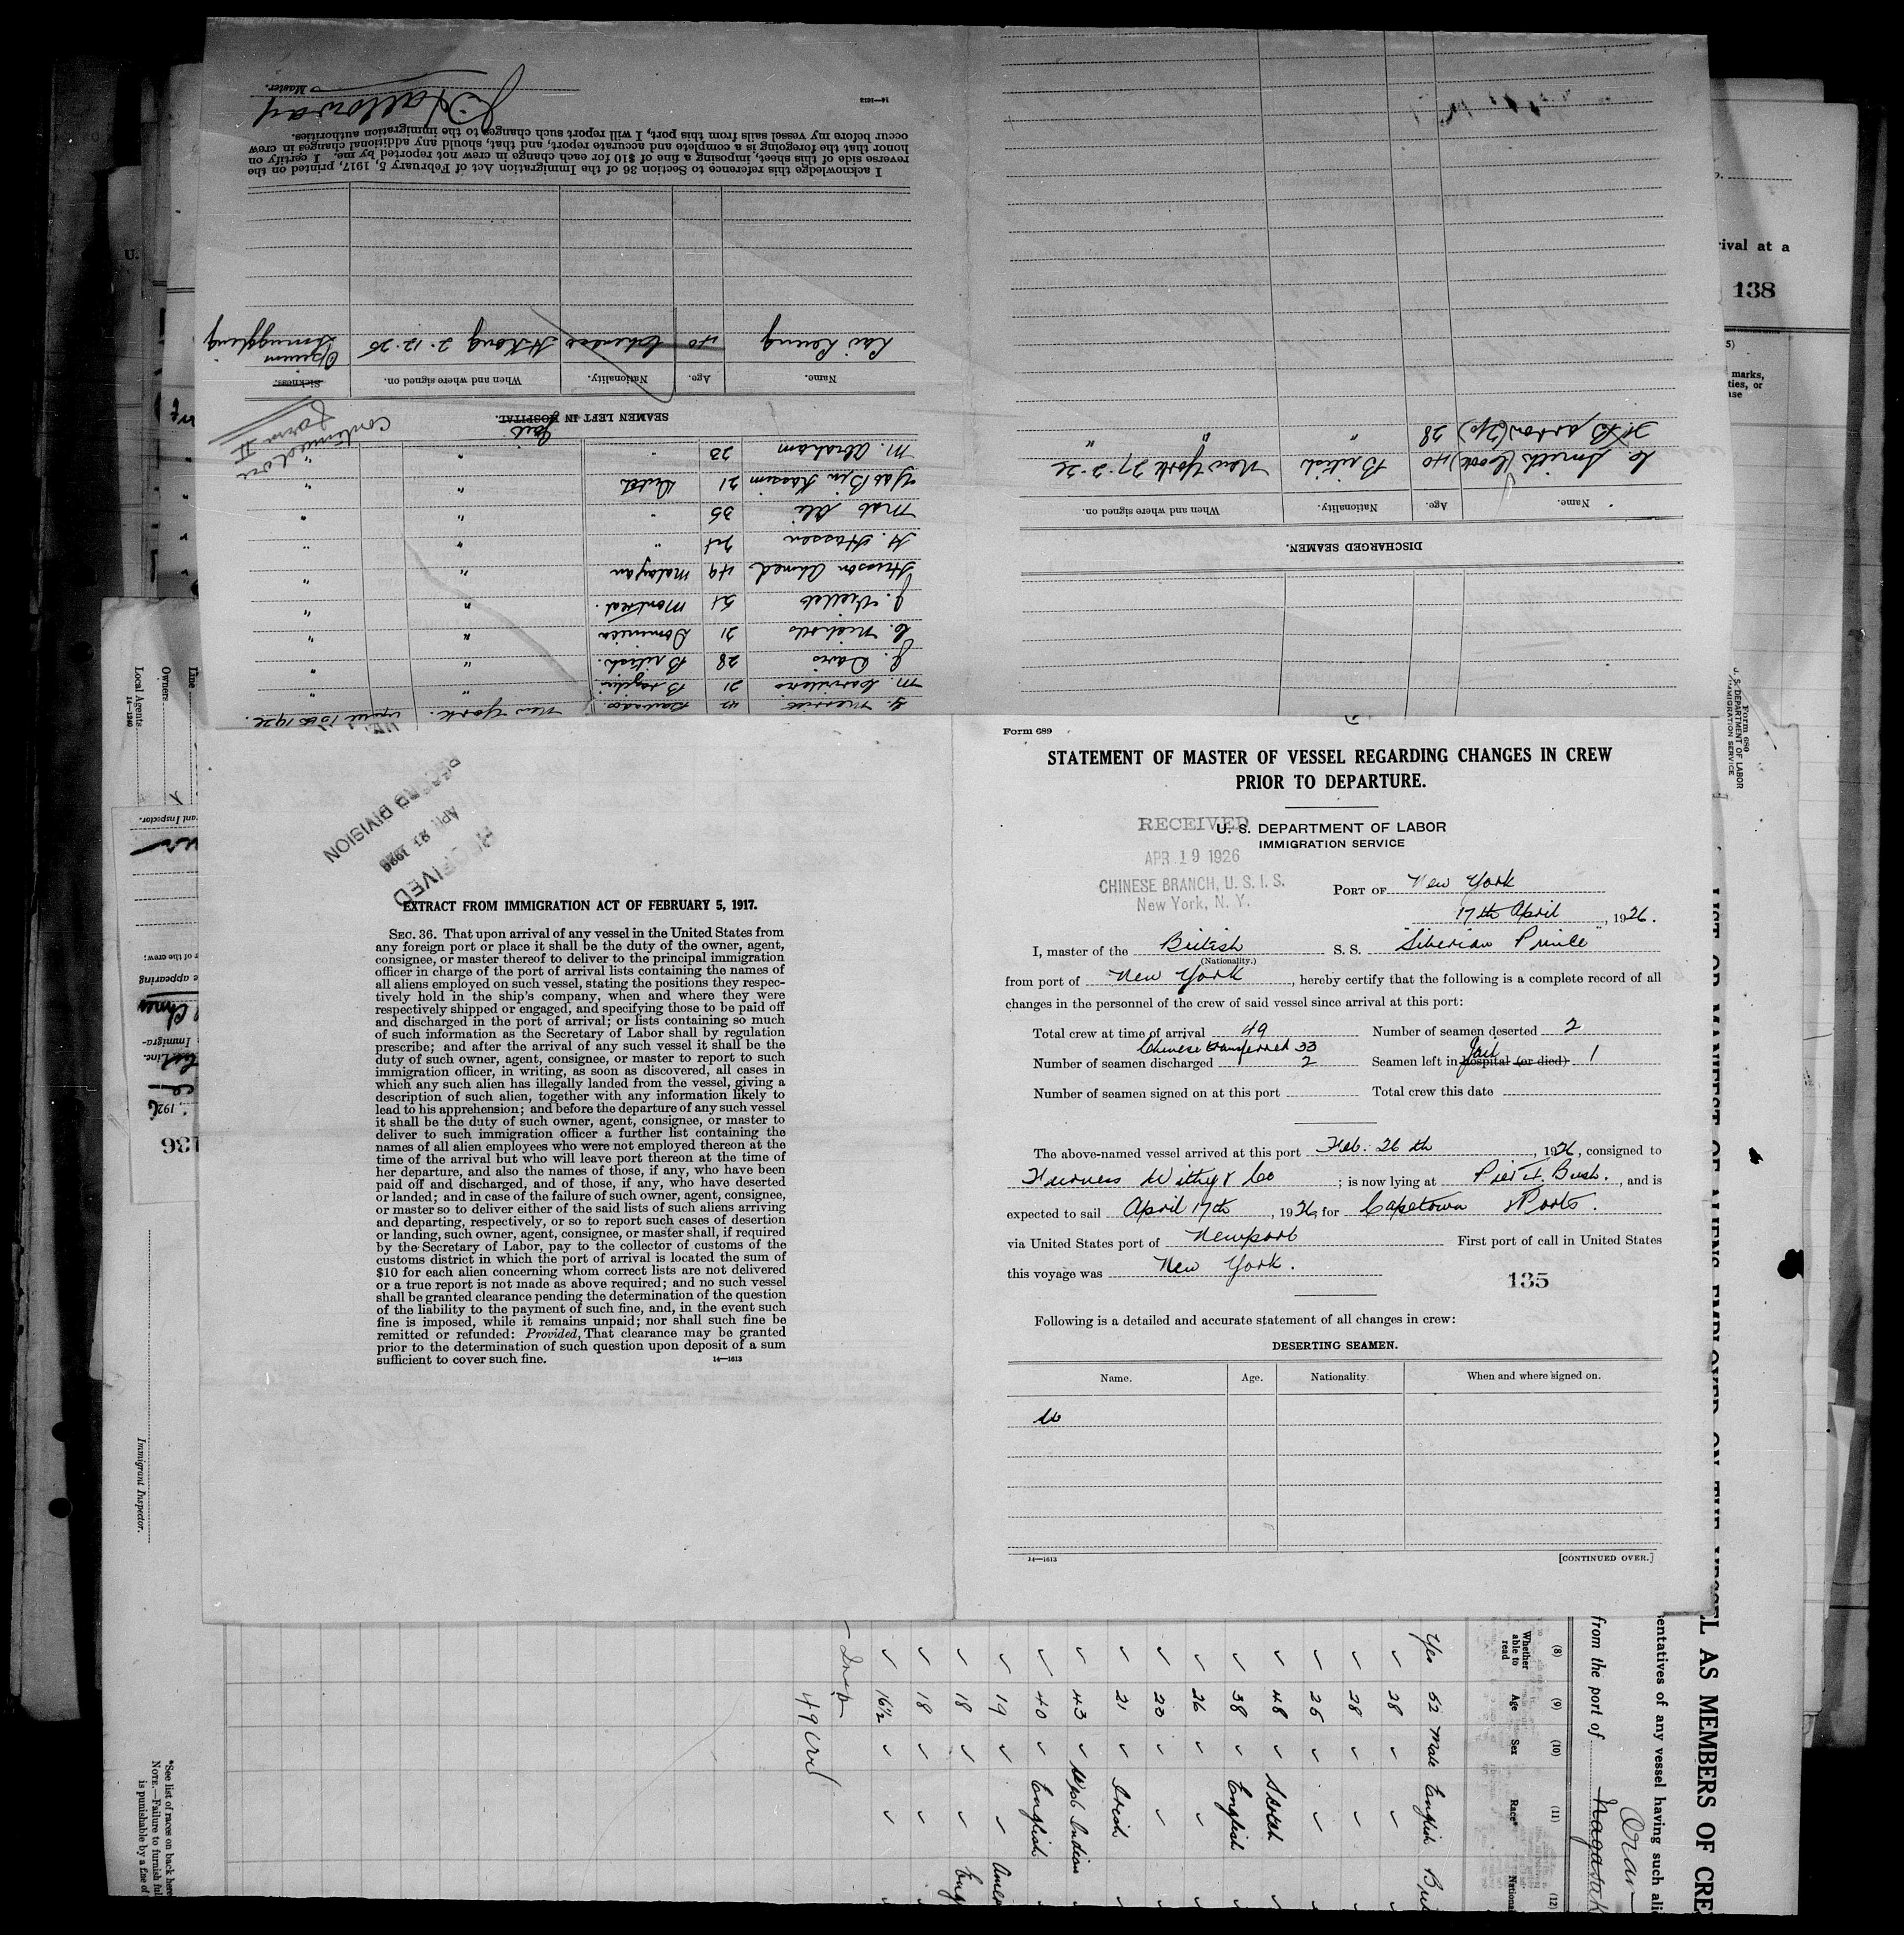 Form 689
STATEMENT OF MASTER OF VESSEL REGARDING CHANGES IN CREW
PRIOR TO DEPARTURE.
RECEIVED
U. S. DEPARTMENT OF LABOR
IMMIGRATION SERVICE
APR 19 1926
CHINESE BRANCH, U. S. I. S.
New York, N. Y.
PORT OF New York
17th April, 1926.
I, master of the British S. S. "Siberian Prince"
(Nationality.)
from port of New York, hereby certify that the following is a complete record of all
changes in the personnel of the crew of said vessel since arrival at this port:
Total crew at time of arrival 49 Number of seamen deserted 2
Chinese transferred 33
Number of seamen discharged 2 Seamen left in hospital (or died) Jail 1
Number of seamen signed on at this port Total crew this date
The above-named vessel arrived at this port Feb. 26th, 1926, consigned to
Furness Withy & Co; is now lying at Pier 4. Bush., and is
expected to sail April 17th, 1926, for Capetown & Ports.
via United States port of Newport First port of call in United States
this voyage was New York.
135
Following is a detailed and accurate statement of all changes in crew:
DESERTING SEAMEN.
Name. Age. Nationality. When and where signed on.
14—1613
[CONTINUED OVER.]
RECEIVED
APR 21 1926
RECORD DIVISION
EXTRACT FROM IMMIGRATION ACT OF FEBRUARY 5, 1917.
SEC. 36. That upon arrival of any vessel in the United States from
any foreign port or place it shall be the duty of the owner, agent,
consignee, or master thereof to deliver to the principal immigration
officer in charge of the port of arrival lists containing the names of
all aliens employed on such vessel, stating the positions they respec-
tively hold in the ship's company, when and where they were
respectively shipped or engaged, and specifying those to be paid off
and discharged in the port of arrival; or lists containing so much
of such information as the Secretary of Labor shall by regulation
prescribe; and after the arrival of any such vessel it shall be the
duty of such owner, agent, consignee, or master to report to such
immigration officer, in writing, as soon as discovered, all cases in
which any such alien has illegally landed from the vessel, giving a
description of such alien, together with any information likely to
lead to his apprehension; and before the departure of any such vessel
it shall be the duty of such owner, agent, consignee, or master to
deliver to such immigration officer a further list containing the
names of all alien employees who were not employed thereon at the
time of the arrival but who will leave port thereon at the time of
her departure, and also the names of those, if any, who have been
paid off and discharged, and of those, if any, who have deserted
or landed; and in case of the failure of such owner, agent, consignee,
or master so to deliver either of the said lists of such aliens arriving
and departing, respectively, or so to report such cases of desertion
or landing, such owner, agent, consignee, or master shall, if required
by the Secretary of Labor, pay to the collector of customs of the
customs district in which the port of arrival is located the sum of
$10 for each alien concerning whom correct lists are not delivered
or a true report is not made as above required; and no such vessel
shall be granted clearance pending the determination of the question
of the liability to the payment of such fine, and, in the event such
fine is imposed, while it remains unpaid; nor shall such fine be
remitted or refunded: Provided, That clearance may be granted
prior to the determination of such question upon deposit of a sum
sufficient to cover such fine.
14—1613
DISCHARGED SEAMEN.
Name. Age. Nationality. When and where signed on.
C. Smith (Cook) 40 British New York 27-2-26
H. Barton (2/0) 28 " " "
G. Merrick 42 New York. April 15th 1926.
M. 21 " "
J. Davis 28 British. " "
C. Nicholls 21 Dominica " "
J. Montreal. " "
Hasson Ahmed 49 Malayan " "
H. Hassen 24 " " "
Mat Ali 35 " " "
Bin Kassim 21 Dutch " "
M. Abraham 23 " " "
Continued on
Form II
SEAMEN LEFT IN HOSPITAL. Jail
Name. Age. Nationality. When and where signed on. Sickness.
Lai Leung 40 Chinese H. Kong 2-12-25 Opium Smuggling
I acknowledge this reference to Section 36 of the Immigration Act of February 5, 1917, printed on the
reverse side of this sheet, imposing a fine of $10 for each change in crew not reported by me. I certify on
honor that the foregoing is a complete and accurate report, and that, should any additional changes in crew
occur before my vessel sails from this port, I will report such changes to the immigration authorities.
14—1613
J Halloway
Master.
rival at a
138
marks,
ties, or
136
Local Agents
Owners
Line
14—1240
Immigrant Inspector.
Form 689
U. S. DEPARTMENT OF LABOR
IMMIGRATION SERVICE
LIST OR MANIFEST OF ALIENS EMPLOYED ON THE VESSEL AS MEMBERS OF CRE
entatives of any vessel having such ali
from the port of Nagasak
Oran
(8) (9) (10) (11) (12)
Whether able to read Age Sex Race* Nationa
Yes 52 Male English Bri
28
28
25
48 Scotch
38 English
26
23
21 Irish
43 West Indian
40 English
19 Amer
18 Eng
18
16½
49 Crew
*See list of races on back her
NOTE.—Failure to furnish ful
is punishable by a fine of